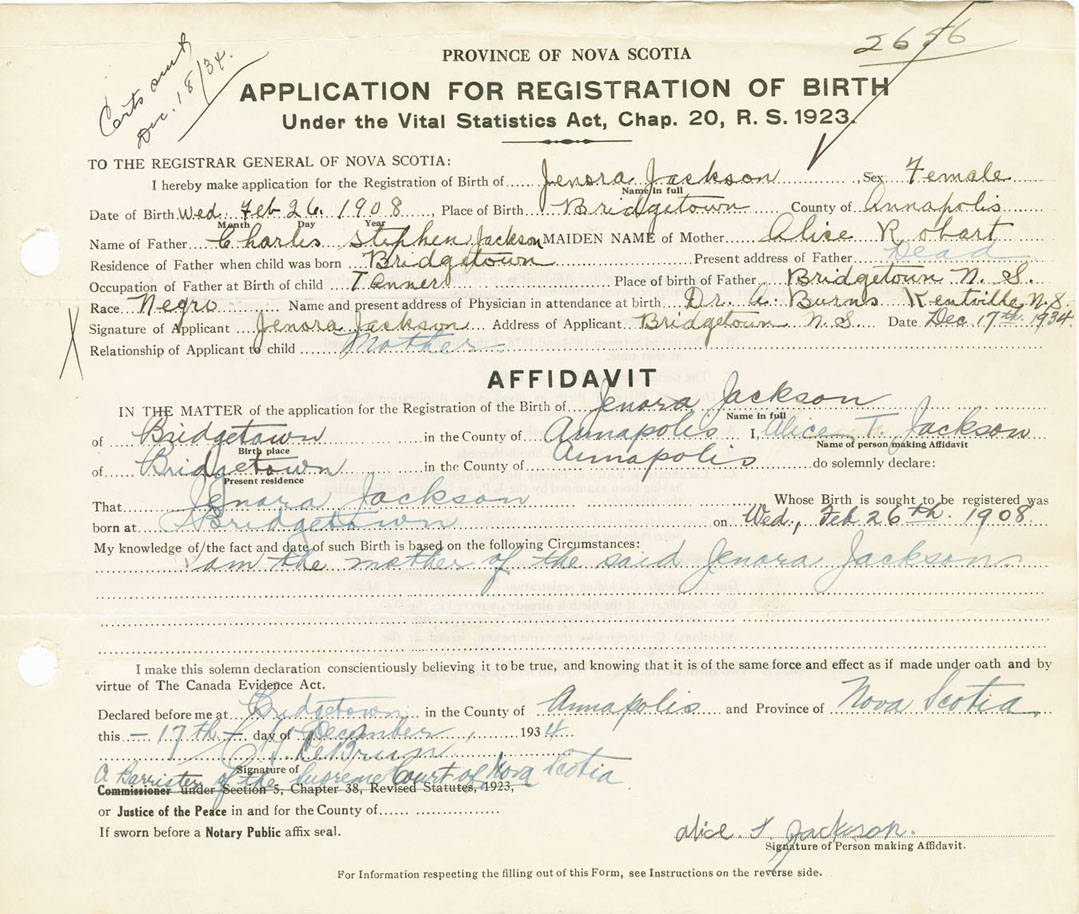 2656
Certs sent
Dec. 18/34.
PROVINCE OF NOVA SCOTIA
APPLICATION FOR REGISTRATION OF BIRTH
Under the Vital Statistics Act, Chap. 20, R. S. 1923.
TO THE REGISTRAR GENERAL OF NOVA SCOTIA:
I hereby make application for the Registration of Birth of Jenora Jackson Sex Female
Name in full
Date of Birth Wed. Feb 26 1908, Place of Birth Bridgetown County of Annapolis
Month Day Year
Name of Father Charles Stephen Jackson MAIDEN NAME of Mother Alice Robart
Residence of Father when child was born Bridgetown Present address of Father Dead
Occupation of Father at Birth of child Tanner Place of birth of Father Bridgetown N. S.
Race Negro Name and present address of Physician in attendance at birth Dr. A. Burns Kentville, N.S.
X Signature of Applicant Jenora Jackson Address of Applicant Bridgetown N. S. Date Dec 17th 1934.
Relationship of Applicant to child Mother
AFFIDAVIT
IN THE MATTER of the application for the Registration of the Birth of Jenora Jackson
Name in full
of Bridgetown in the County of Annapolis I, Alice T. Jackson
Birth place Name of person making Affidavit
of Bridgetown in the County of Annapolis do solemnly declare:
Present residence
That Jenora Jackson Whose Birth is sought to be registered was
born at Bridgetown on Wed., Feb 26th 1908.
My knowledge of the fact and date of such Birth is based on the following Circumstances:
I am the mother of the said Jenora Jackson
I make this solemn declaration conscientiously believing it to be true, and knowing that it is of the same force and effect as if made under oath and by
virtue of The Canada Evidence Act.
Declared before me at Bridgetown in the County of Annapolis and Province of Nova Scotia
this - 17th - day of December, 1934.
LeBrun
Signature of
A Barrister of the Supreme Court of Nova Scotia
Commissioner under Section 5, Chapter 38, Revised Statutes, 1923,
or Justice of the Peace in and for the County of
If sworn before a Notary Public affix seal.
Alice. T. Jackson.
Signature of Person making Affidavit.
For Information respecting the filling out of this Form, see Instructions on the reverse side.